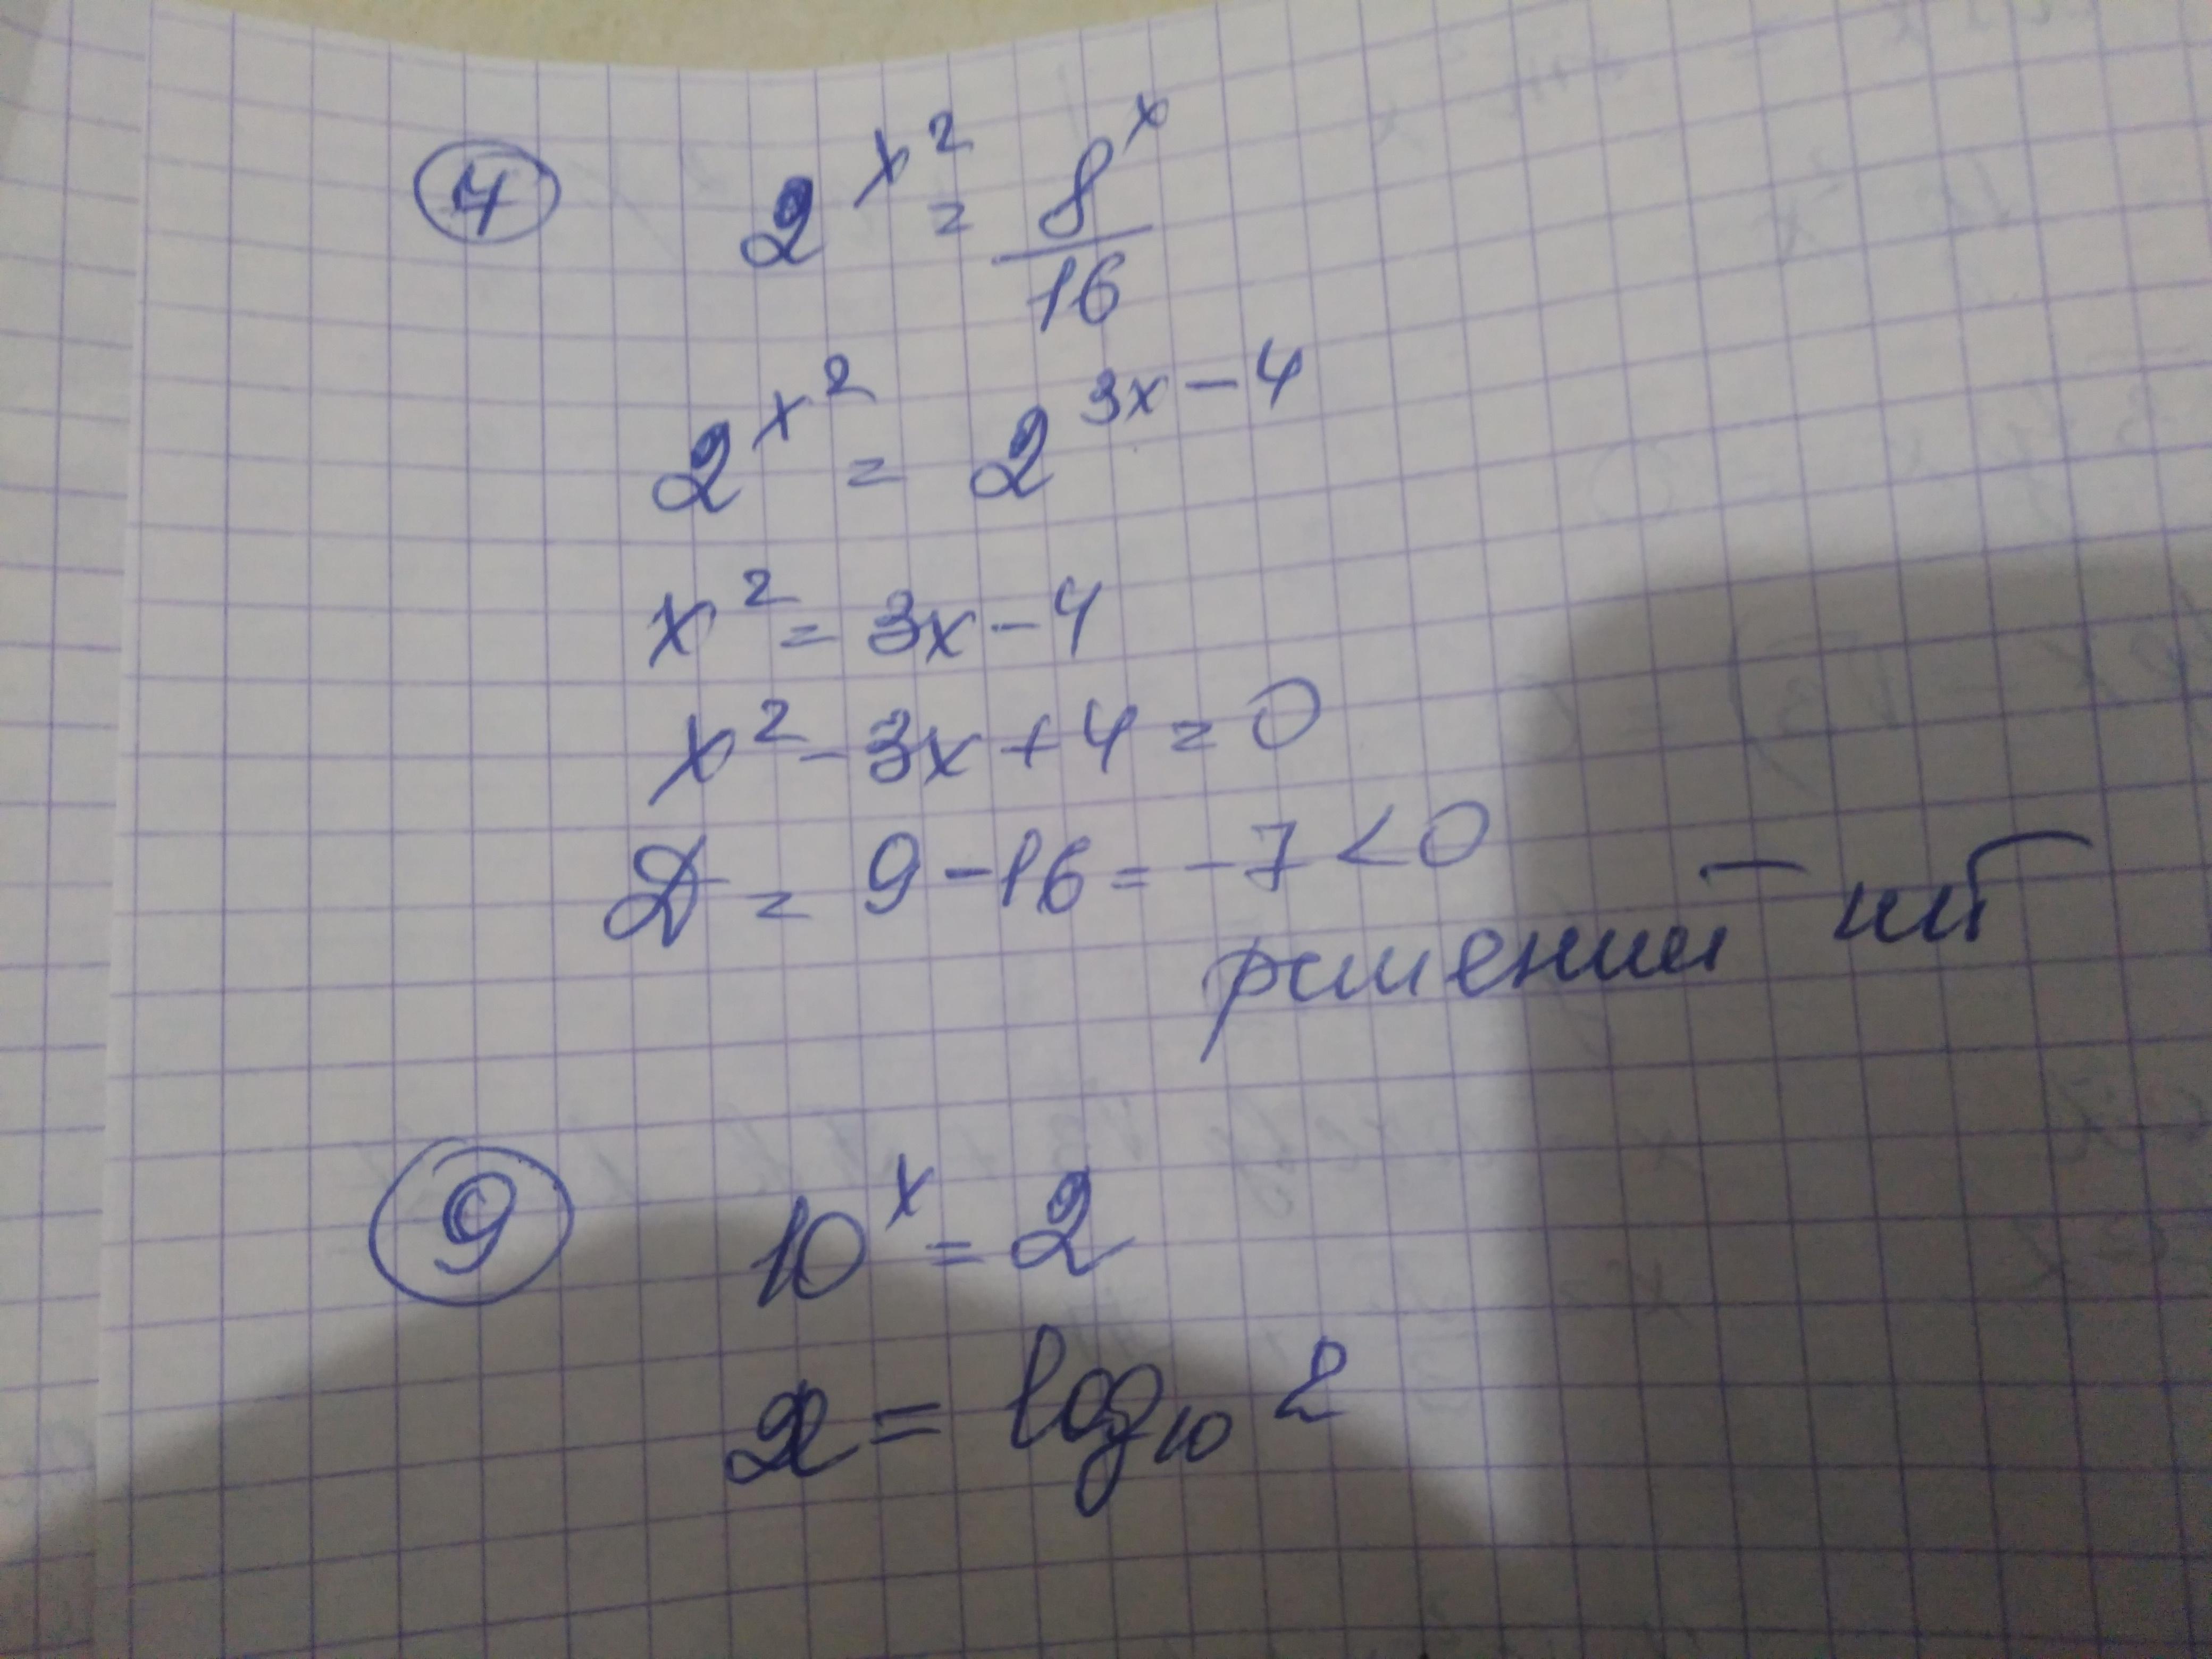 4 2^x^2 = 8^x/16
2^x^2 = 2^3x-4
x^2 = 3x-4
x^2 - 3x + 4 = 0
D = 9-16 = -7 < 0
решений нет
9 10^x = 2
x = log_10 2